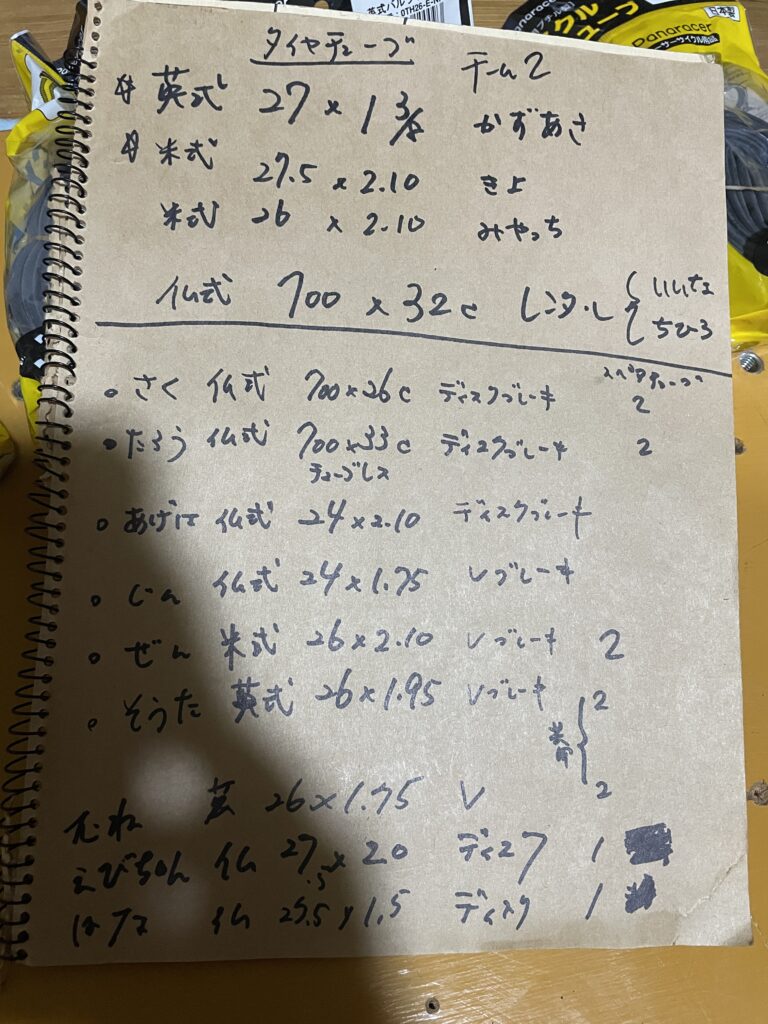 英式バル
: 0TH26-E-N
日本製
Panaracer
タイヤチューブ チーム2
英式 27 × 1 3/8 かずあさ
米式
27.5 × 2.10 きよ
米式 26 × 2.10 みやっち
仏式 700 × 32c レンタル { いいちょ
ちひろ
スペアチューブ
• さく 仏式 700×26c ディスクブレーキ 2
• たろう 仏式 700×33c ディスクブレーキ 2
チューブレス
• あげは 仏式 24×2.10 ディスクブレーキ
• じん 仏式 24×1.75 Vブレーキ
• ぜん 米式 26×2.10 Vブレーキ 2
• そうた 英式 26×1.95 Vブレーキ 2
2
むね 英 26×1.75 V
えびちゃん 仏 27.5×20 ディスク 1
仏 27.5×1.5 ディスク 1